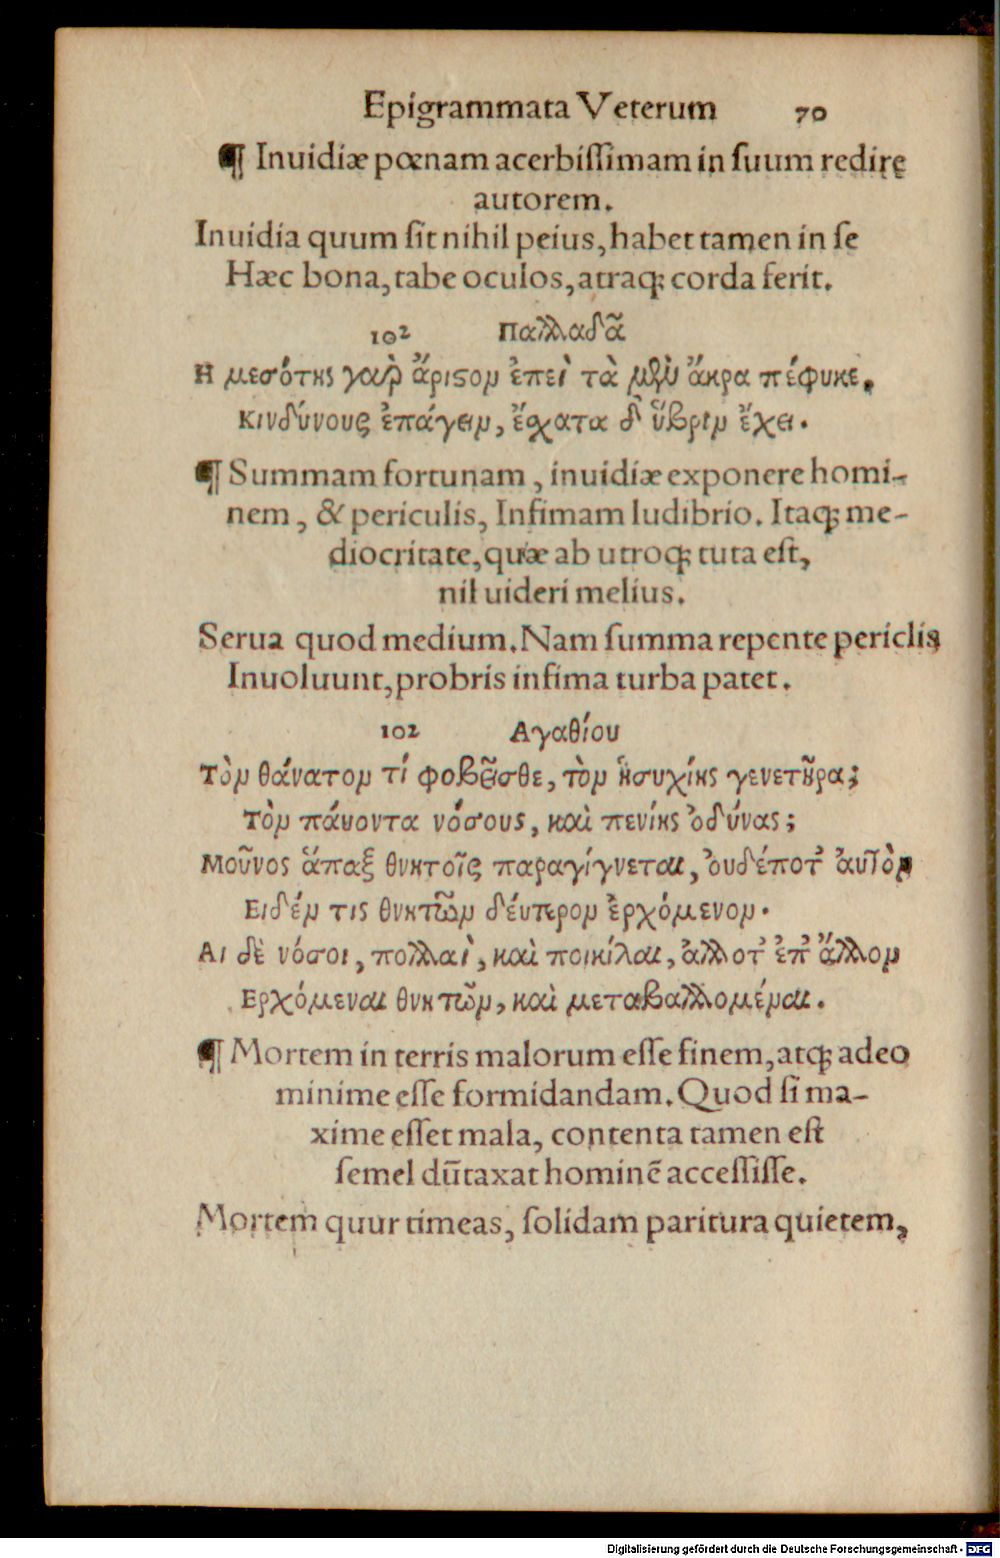 Epigrammata Veterum 70
¶ Inuidiæ pœnam acerbiſſimam in ſuum redire
autorem.
Inuidia quum ſit nihil peius, habet tamen in ſe
Hæc bona, tabe oculos, atraq; corda ferit.
102 Παλλαδᾶ
Η μεσότης γαὶρ ἄριστον ἐπεὶ τὰ μὲν ἄκρα πέφυκε,
Κινδύνους ἐπάγειν, ἔσχατα δ' ὕβριν ἔχει.
¶ Summam fortunam, inuidiæ exponere homi-
nem, & periculis, Infimam ludibrio. Itaq; me-
diocritate, quæ ab utroq; tuta eſt,
nil uideri melius.
Serua quod medium. Nam ſumma repente periclis
Inuoluunt, probris infima turba patet.
102 Αγαθίου
Τὸν θάνατον τί φοβεῖσθε, τὸν ἡσυχίης γενετῆρα;
Τὸν πάυοντα νόσους, καὶ πενίης ὀδύνας;
Μοῦνος ἅπαξ θνητοῖς παραγίγνεται, ὀυδέποτ' ἀυτὸν
Ειδέν τις θνητῶν δέυτερον ἐρχόμενον.
Αι δὲ νόσοι, πολλαὶ, καὶ ποικίλαι, ἀλλοτ' ἐπ' ἄλλον
Ερχόμεναι θνητῶν, καὶ μεταβαλλομέναι.
¶ Mortem in terris malorum eſſe finem, atq; adeo
minime eſſe formidandam. Quod ſi ma-
xime eſſet mala, contenta tamen eſt
ſemel dūtaxat hominē acceſſiſſe.
Mortem quur timeas, ſolidam paritura quietem,
Digitalisierung gefördert durch die Deutsche Forschungsgemeinschaft - DFG